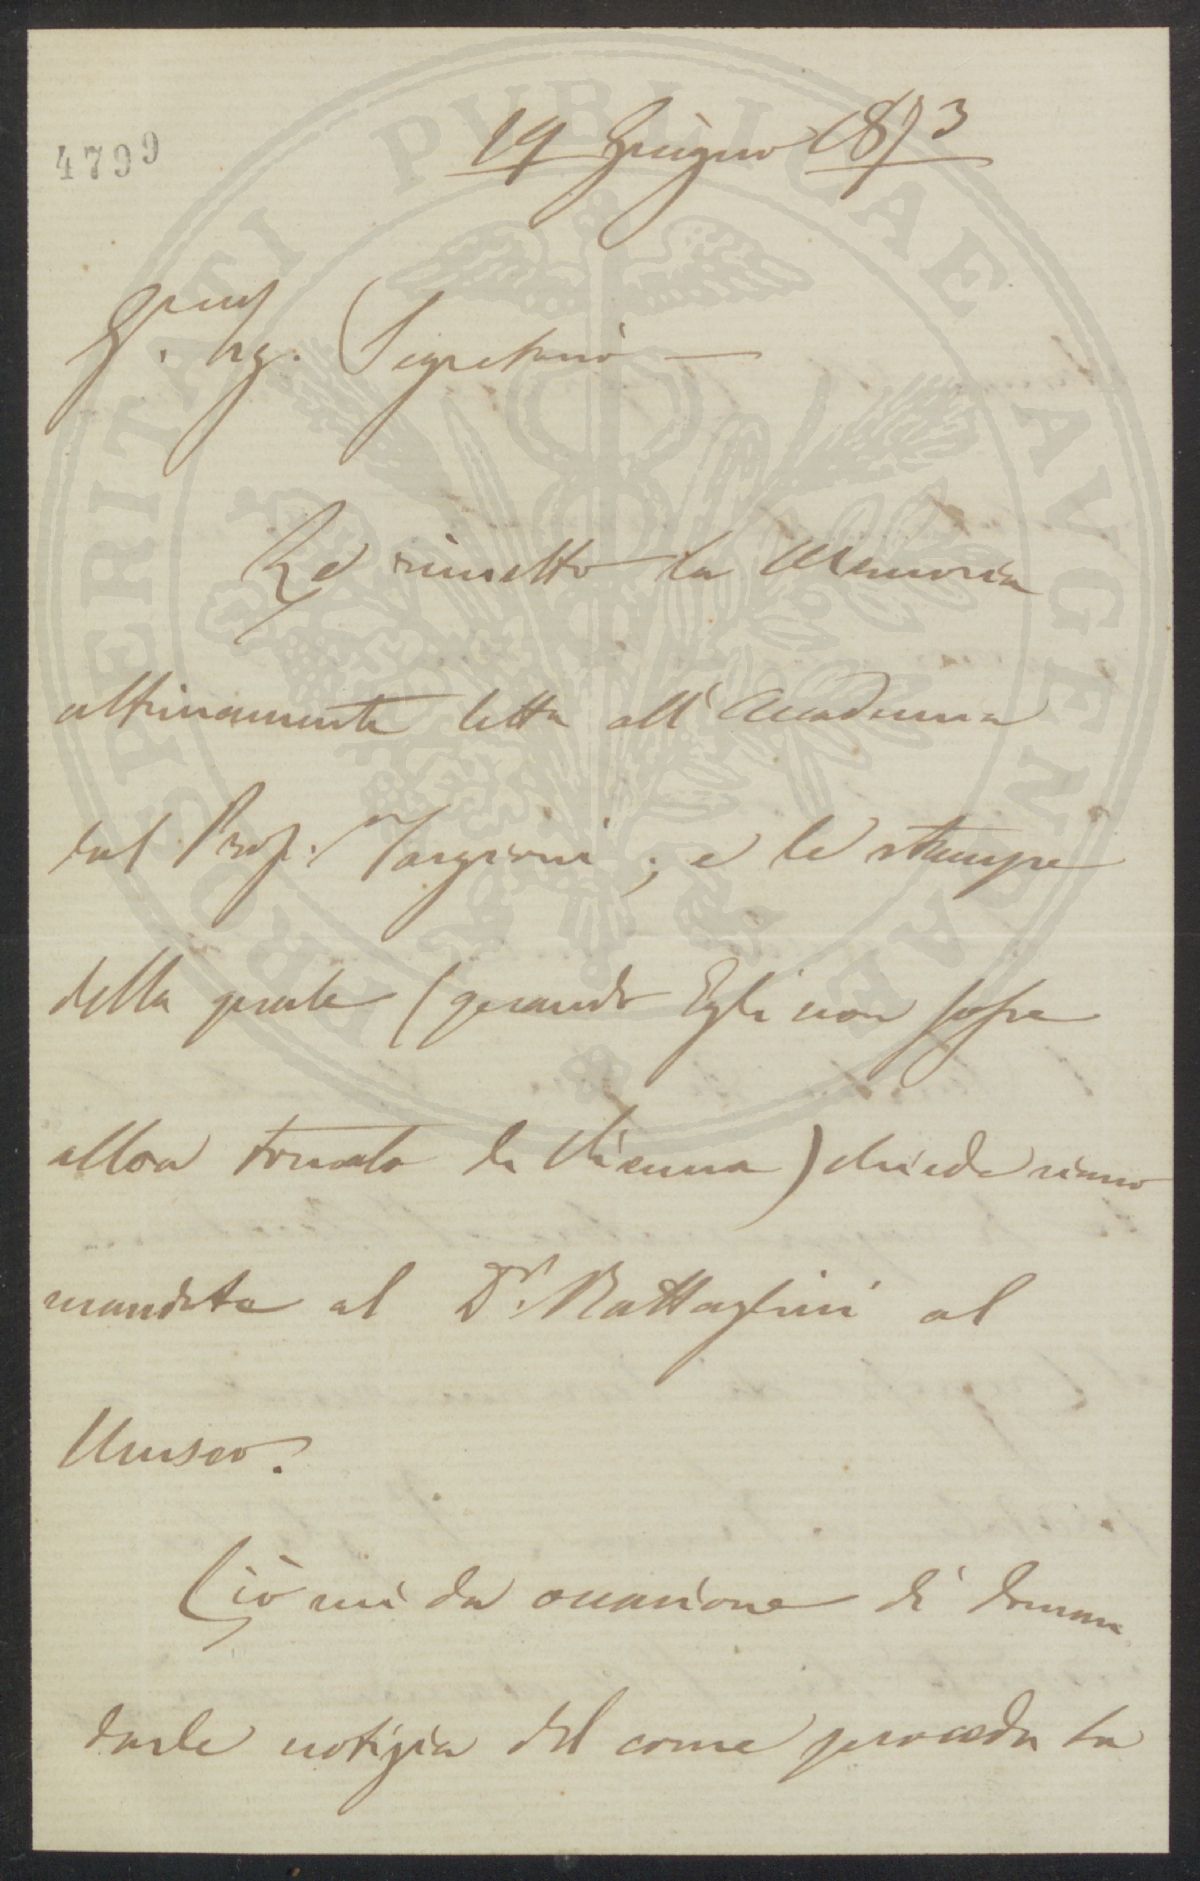 4799
19 Giugno 1873
Sig. Segretario —
Le rimetto la Memoria
ultimamente letta all'Accademia
dal Prof. Targioni; e le stampe
della quale (quando Egli non fosse
allora tornato da Vienna) chiede siano
mandate al Dr. Battaglini al
Museo.
Ciò mi da occasione di doman
darle notizia del come proceda la
PROSPERITATI PVBLICAE AVGENDAE